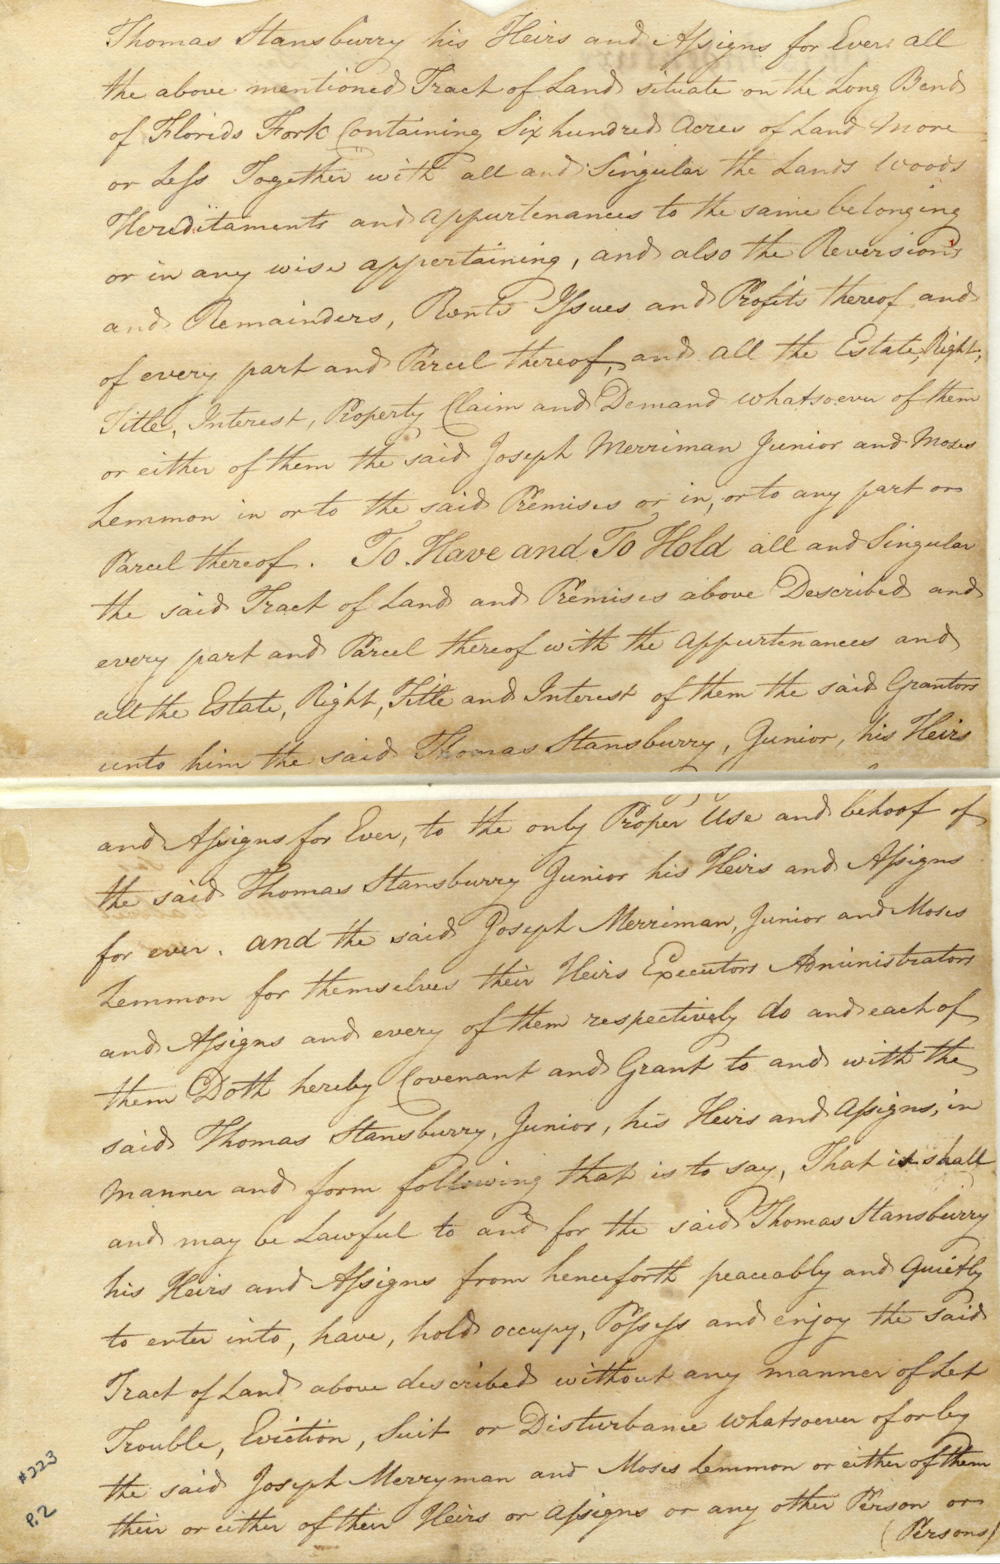 Thomas Stansburry his Heirs and Assigns for Ever all
the above mentioned Tract of Land situate on the Long Bend
of Florids Fork Containing Six hundred Acres of Land More
or Less Together with all and Singular the Lands Woods
Hereditaments and appurtenances to the same belonging
or in any wise appertaining, and also the Reversions
and Remainders, Rents Issues and Profits thereof and
of every part and Parcel thereof, and all the Estate, Right,
Title, Interest, Property Claim and Demand whatsoever of them
or either of them the said Joseph Merriman Junior and Moses
Lemmon in or to the said Premises or in, or to any part or
Parcel thereof. To Have and To Hold all and Singular
the said Tract of Land and Premises above Described and
every part and Parcel thereof with the appurtenances and
all the Estate, Right, Title and Interest of them the said Grantors
unto him the said Thomas Stansburry, Junior, his Heirs
and Assigns for Ever, to the only Proper Use and behoof of
the said Thomas Stansburry Junior his Heirs and Assigns
for ever. and the said Joseph Merriman, Junior and Moses
Lemmon for themselves their Heirs Executors Administrators
and Assigns and every of them respectively do and each of
them Doth hereby Covenant and Grant to and with the
said Thomas Stansburry, Junior, his Heirs and Assigns, in
manner and form following that is to say, That it shall
and may be Lawful to and for the said Thomas Stansburry
his Heirs and Assigns from henceforth peaceably and Quietly
to enter into, have, hold occupy, Possess and enjoy the said
Tract of Land above described without any manner of Let
Trouble, Eviction, Suit or Disturbance whatsoever of or by
the said Joseph Merryman and Moses Lemmon or either of them
their or either of their Heirs or Assigns or any other Person or
(Persons)
#223
P.2